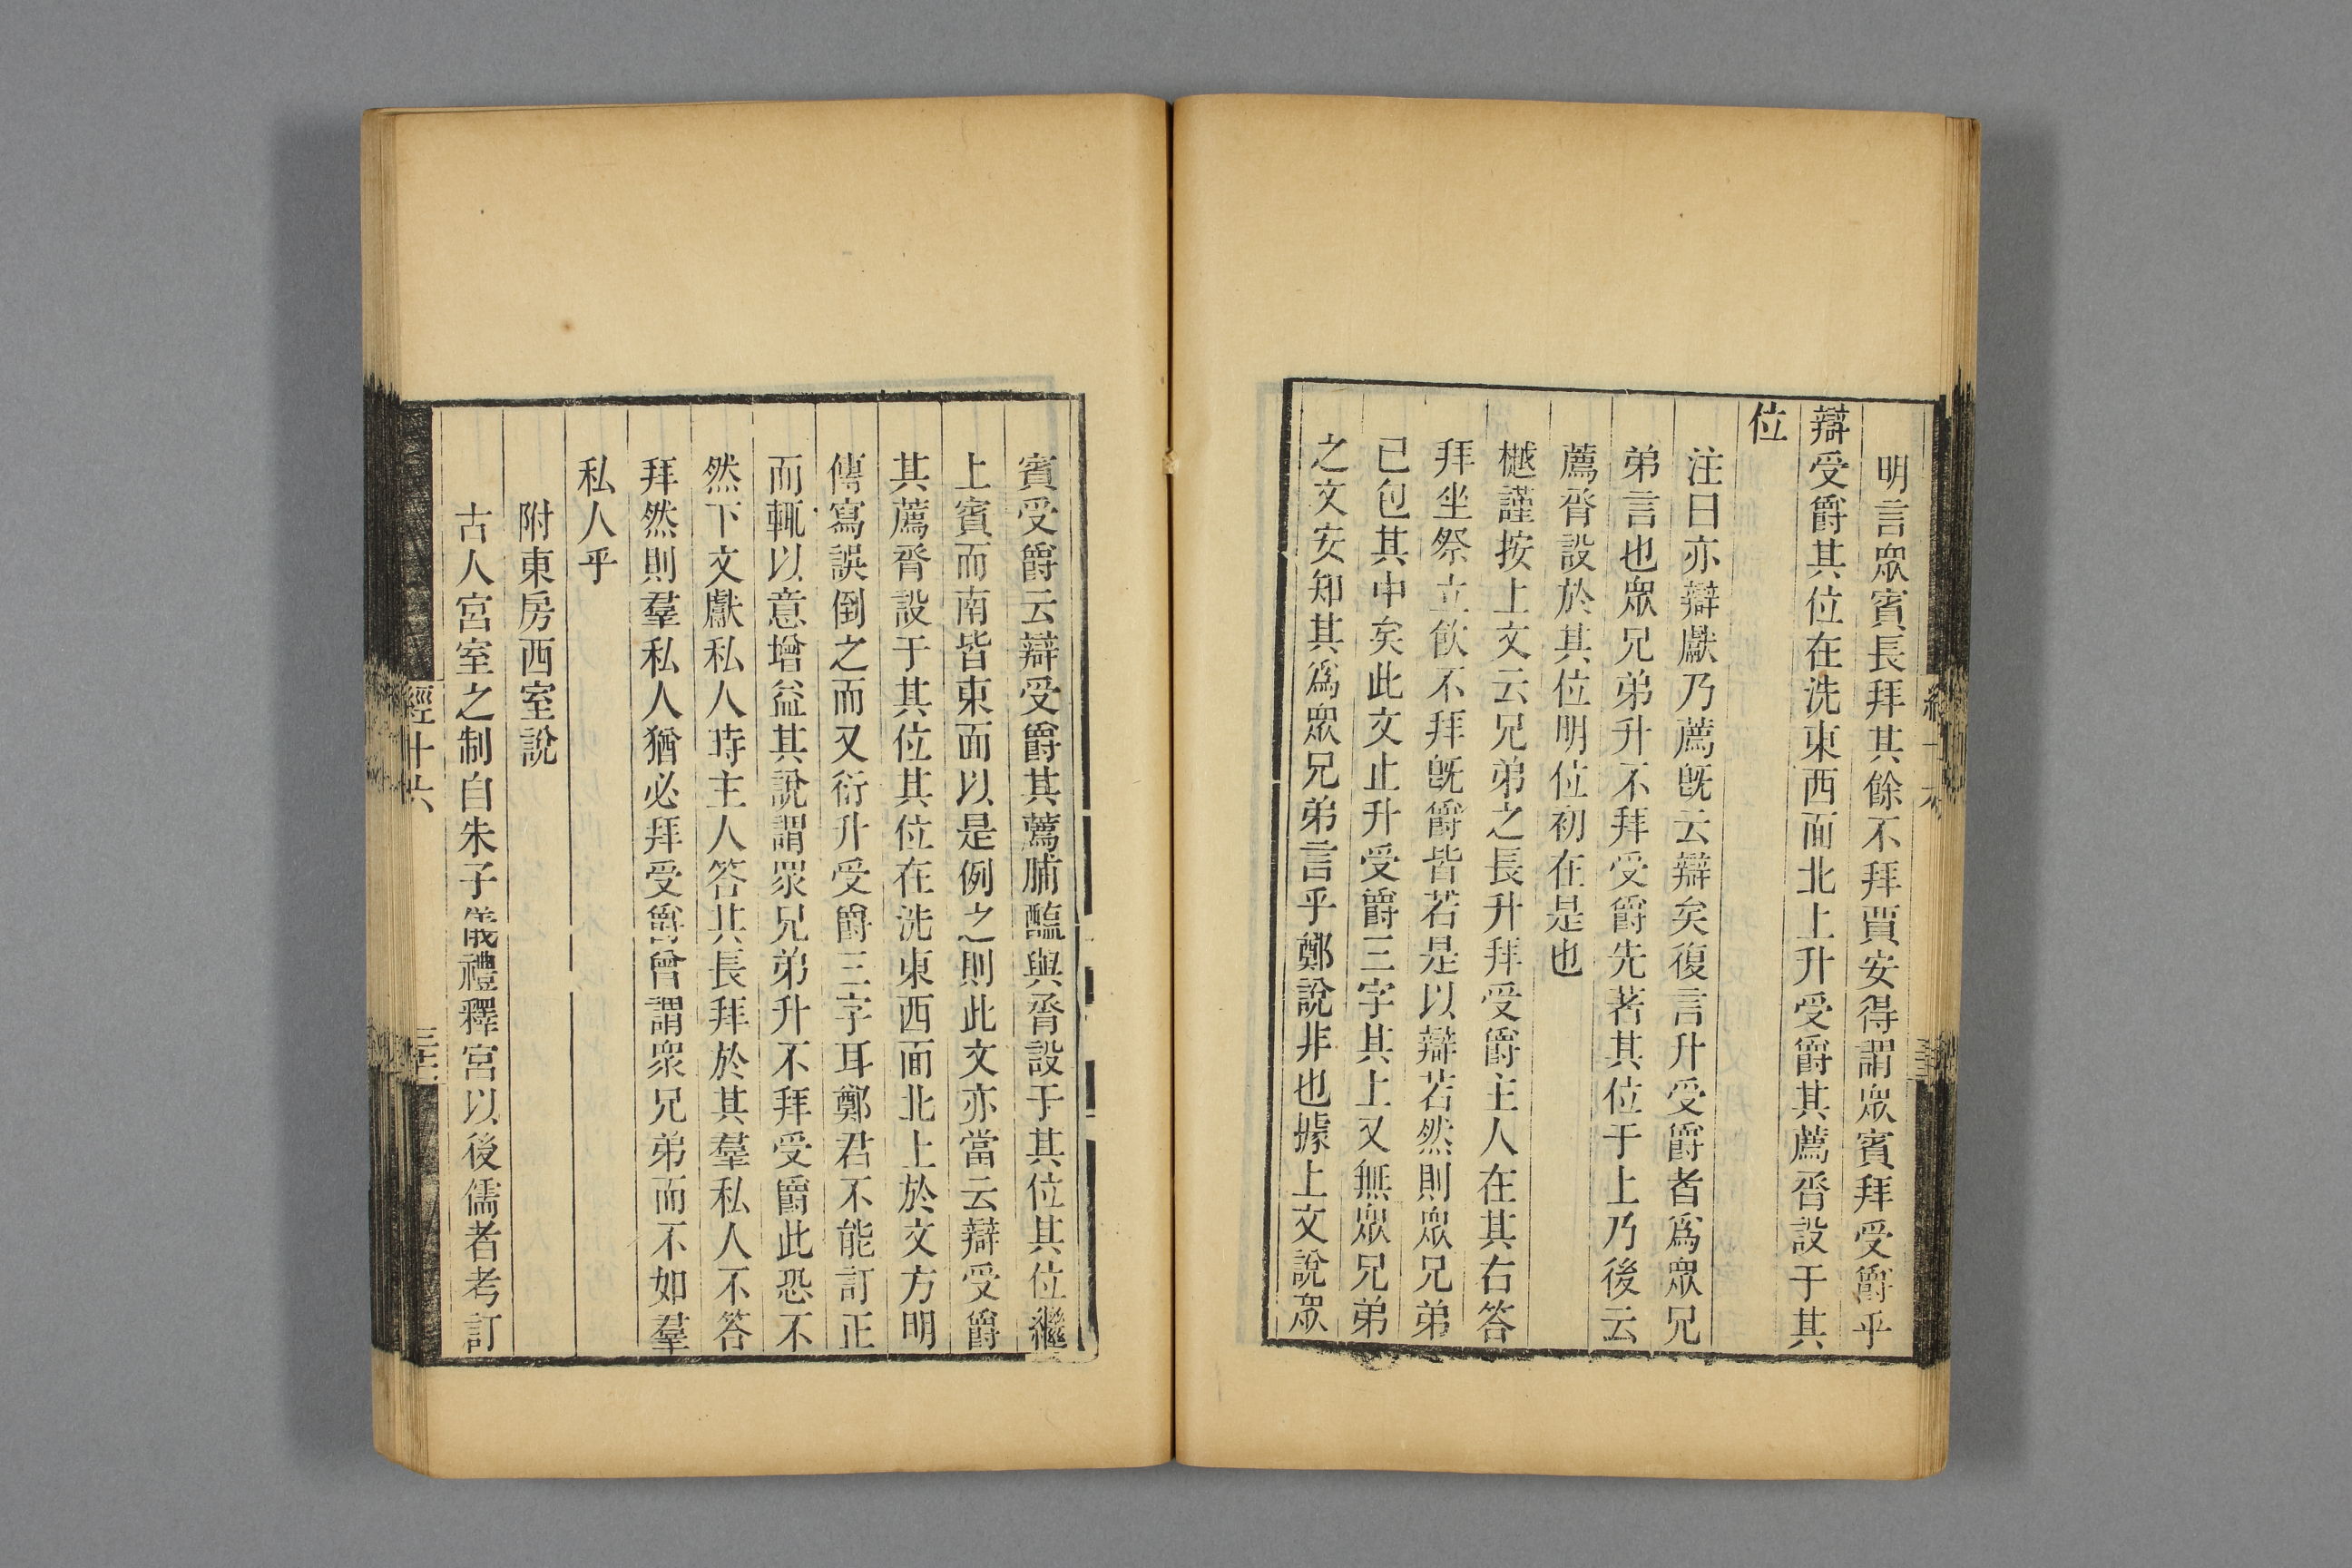 明言眾賓長拜其餘不拜賈安得謂眾賓拜受爵乎
辯受爵其位在洗東西面北上升受爵其薦脀設于其
位
注曰亦辯獻乃薦旣云辯矣復言升受爵者爲眾兄
弟言也眾兄弟升不拜受爵先著其位于上乃後云
薦脀設於其位明位初在是也
樾謹按上文云兄弟之長升拜受爵主人在其右答
拜坐祭立飮不拜旣爵皆若是以辯若然則眾兄弟
已包其中矣此文止升受爵三字其上又無眾兄弟
之文安知其爲眾兄弟言乎鄭說非也據上文說眾
賓受爵云辯受爵其薦脯醢與脀設于其位其位繼
上賓而南皆東面以是例之則此文亦當云辯受爵
其薦脀設于其位其位在洗東西面北上於文方明
傳寫誤倒之而又衍升受爵三字耳鄭君不能訂正
而輒以意增益其說謂眾兄弟升不拜受爵此恐不
然下文獻私人時主人答其長拜於其羣私人不答
拜然則羣私人猶必拜受爵曾謂眾兄弟而不如羣
私人乎
附東房西室說
古人宮室之制自朱子儀禮釋宮以後儒者考訂
經十六